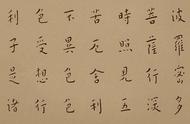 波羅密多
菩薩行深
時照見五
苦厄舍利
不異色色
色受想行
利子是諸